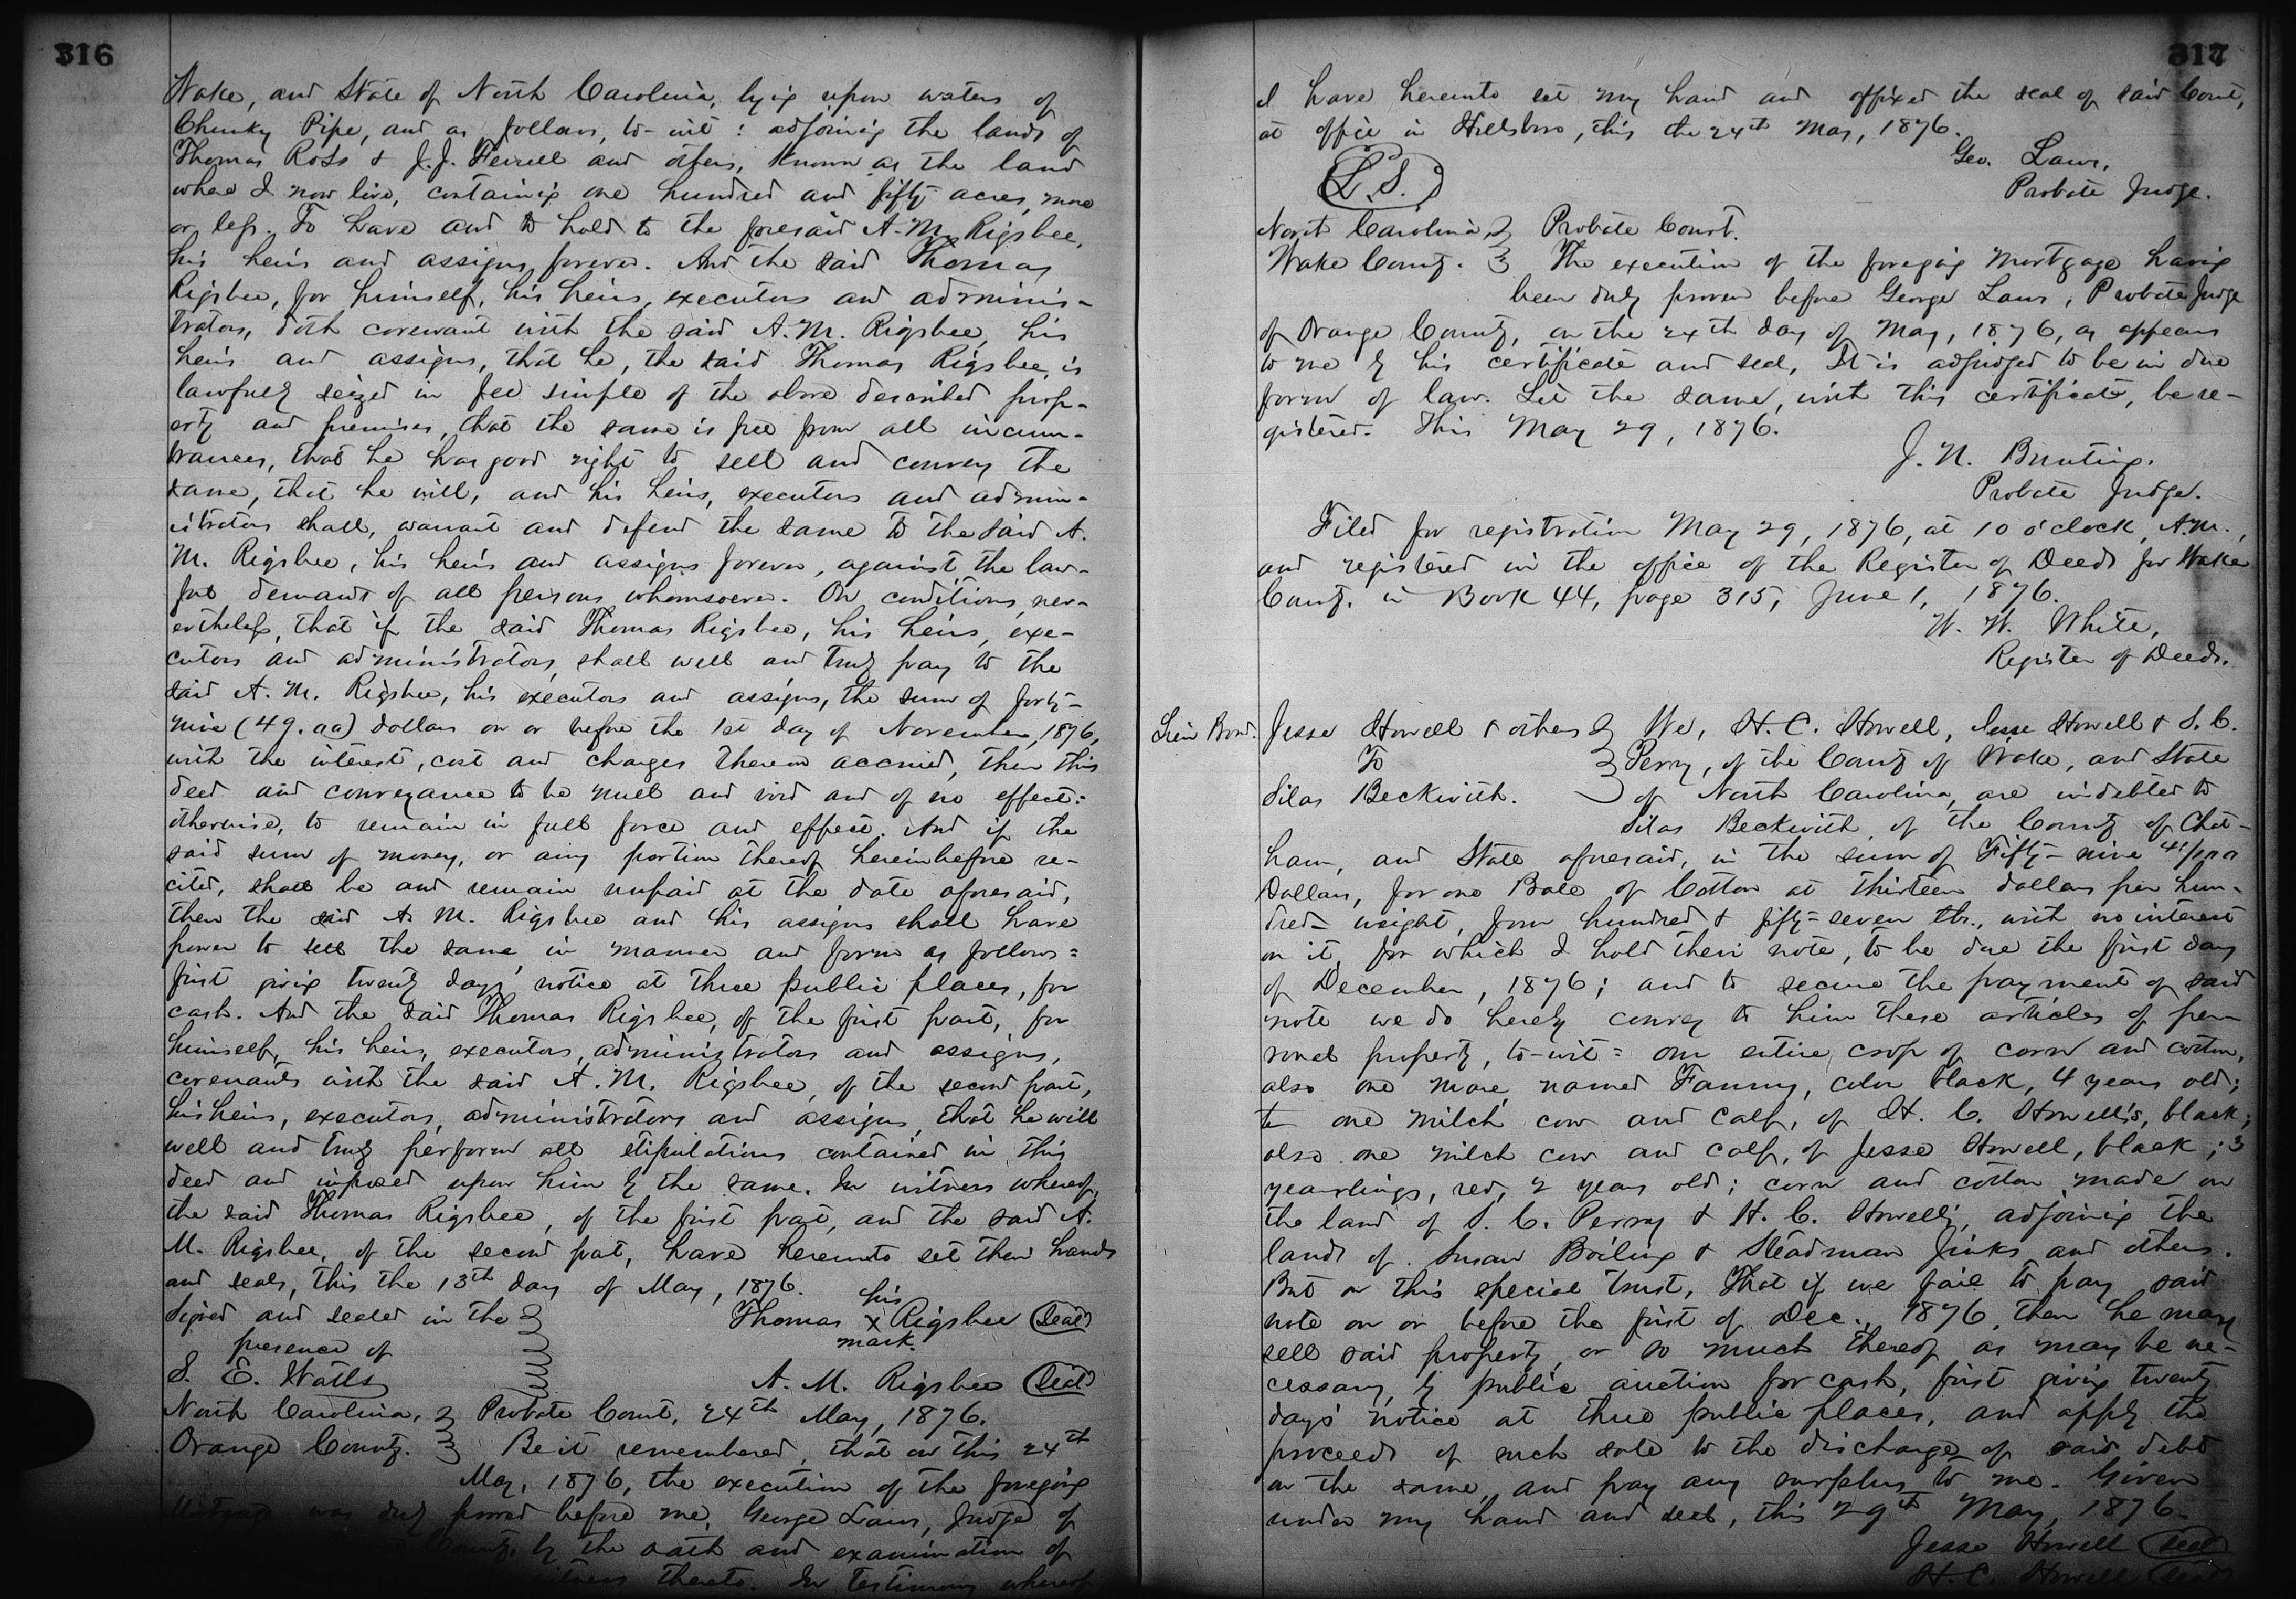 316
Wake, and State of North Carolina, lying upon waters of
Chunky Pipe, and as follows, to-wit: adjoining the lands of
Thomas Ross & J. J. Ferrell and others, known as the land
where I now live, containing one hundred and fifty acres, more
or less. To have and to hold to the foresaid A. M. Rigsbee,
his heirs and assigns forever. And the said Thomas
Rigsbee, for himself, his heirs, executors and adminis-
trators, doth covenant with the said A. M. Rigsbee, his
heirs and assigns, that he, the said Thomas Rigsbee, is
lawfully seized in fee simple of the above described prop-
erty and premises, that the same is free from all incum-
brances, that he has good right to sell and convey the
same, that he will, and his heirs, executors and admin-
istrators shall, warrant and defend the same to the said A.
M. Rigsbee, his heirs and assigns forever, against the law-
ful demands of all persons whomsoever. On conditions, nev-
ertheless, that if the said Thomas Rigsbee, his heirs, exe-
cutors and administrators, shall well and truly pay to the
said A. M. Rigsbee, his executors and assigns, the sum of forty-
nine (49.00) dollars on or before the 1st day of November, 1876,
with the interest, cost and charges thereon accrued, then this
deed and conveyance to be null and void and of no effect:
otherwise, to remain in full force and effect. And if the
said sum of money, or any portion thereof hereinbefore re-
cited, shall be and remain unpaid at the date aforesaid,
then the said A. M. Rigsbee and his assigns shall have
power to sell the same in manner and form as follows:
first giving twenty days' notice at three public places, for
cash. And the said Thomas Rigsbee, of the first part, for
himself, his heirs, executors, administrators and assigns,
covenants with the said A. M. Rigsbee, of the second part,
his heirs, executors, administrators and assigns, that he will
well and truly perform all stipulations contained in this
deed and imposed upon him by the same. In witness whereof,
the said Thomas Rigsbee, of the first part, and the said A.
M. Rigsbee, of the second part, have hereunto set their hands
and seals, this the 13th day of May, 1876.
Signed and sealed in the
presence of
S. E. Watts
his
Thomas x Rigsbee (Seal)
mark.
A. M. Rigsbee (Seal)
North Carolina, Probate Court, 24th May, 1876.
Orange County. Be it remembered, that on this 24th
May, 1876, the execution of the foregoing
was duly proved before me, George Laws, Judge of
County, by the oath and examination of
witness thereto. In testimony whereof
317
I have hereunto set my hand and affixed the seal of said Court,
at office in Hillsboro, this the 24th May, 1876.
Geo. Laws,
Probate Judge.
(L.S.)
North Carolina, Probate Court.
Wake County. The execution of the foregoing Mortgage having
been duly proven before George Laws, Probate Judge
of Orange County, on the 24th day of May, 1876, as appears
to me by his certificate and seal, It is adjudged to be in due
form of law. Let the same, with this certificate, be re-
gistered. This May 29, 1876.
J. N. Bunting.
Probate Judge.
Filed for registration May 29, 1876, at 10 o'clock, A.M.,
and registered in the office of the Register of Deeds for Wake
County, in Book 44, page 315, June 1, 1876.
W. W. White,
Register of Deeds.
Lien Bond.
Jesse Howell & others
To
Silas Beckwith.
We, H. C. Howell, Jesse Howell & S. C.
Perry, of the County of Wake, and State
of North Carolina, are indebted to
Silas Beckwith, of the County of Chat-
ham, and State aforesaid, in the sum of Fifty-nine 41/100
Dollars, for one Bale of Cotton at thirteen dollars per hun-
dred-weight, four hundred & fifty-seven lbs., with no interest
on it, for which I hold their note, to be due the first day
of December, 1876; and to secure the payment of said
note we do hereby convey to him these articles of per-
sonal property, to-wit: our entire crop of corn and cotton,
also one mare, named Fanny, color black, 4 years old;
to one milch cow and calf, of H. C. Howell's, black;
also one milch cow and calf, of Jesse Howell, black; 3
yearlings, red, 2 years old; corn and cotton made on
the land of S. C. Perry & H. C. Howell's, adjoining the
lands of Susan Boiling & Steadman Jinks and others.
But on this special trust, That if we fail to pay said
note on or before the first of Dec., 1876, then he may
sell said property, or so much thereof as may be ne-
cessary, by public auction for cash, first giving twenty
days' notice at three public places, and apply the
proceeds of such sale to the discharge of said debt
on the same, and pay any surplus to me. Given
under my hand and seal, this 29th May, 1876.
Jesse Howell (Seal)
H. C. Howell (Seal)